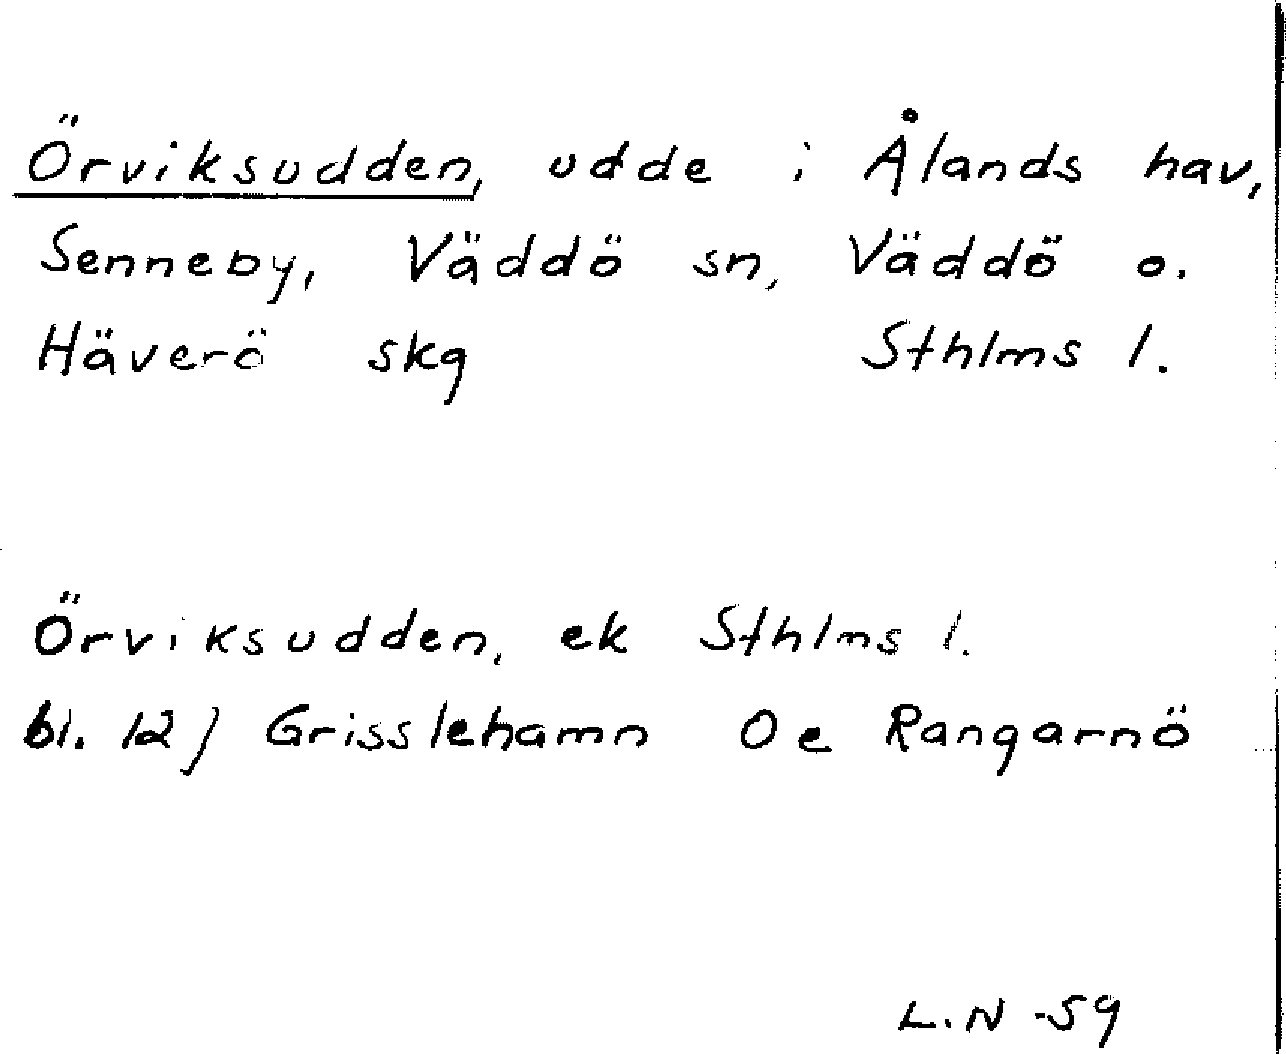 Örviksudden, udde i Ålands hav,
Senneby, Väddö sn, Väddö o.
Häverö skg Sthlms l.
Örviksudden, ek Sthlms l.
bl. 12 j Grisslehamn Oe Rangarnö
L.N -59